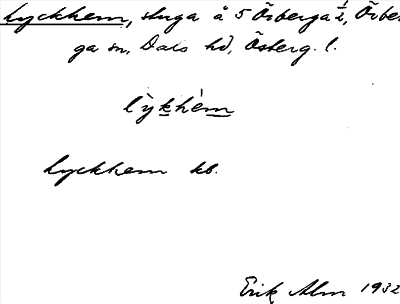 Lyckhem, stuga å 5 Örberga ½, Örber
ga sn, Dals hd, Österg. l.
lỳkhèm
Lyckhem kb.
Erik Alm 1932